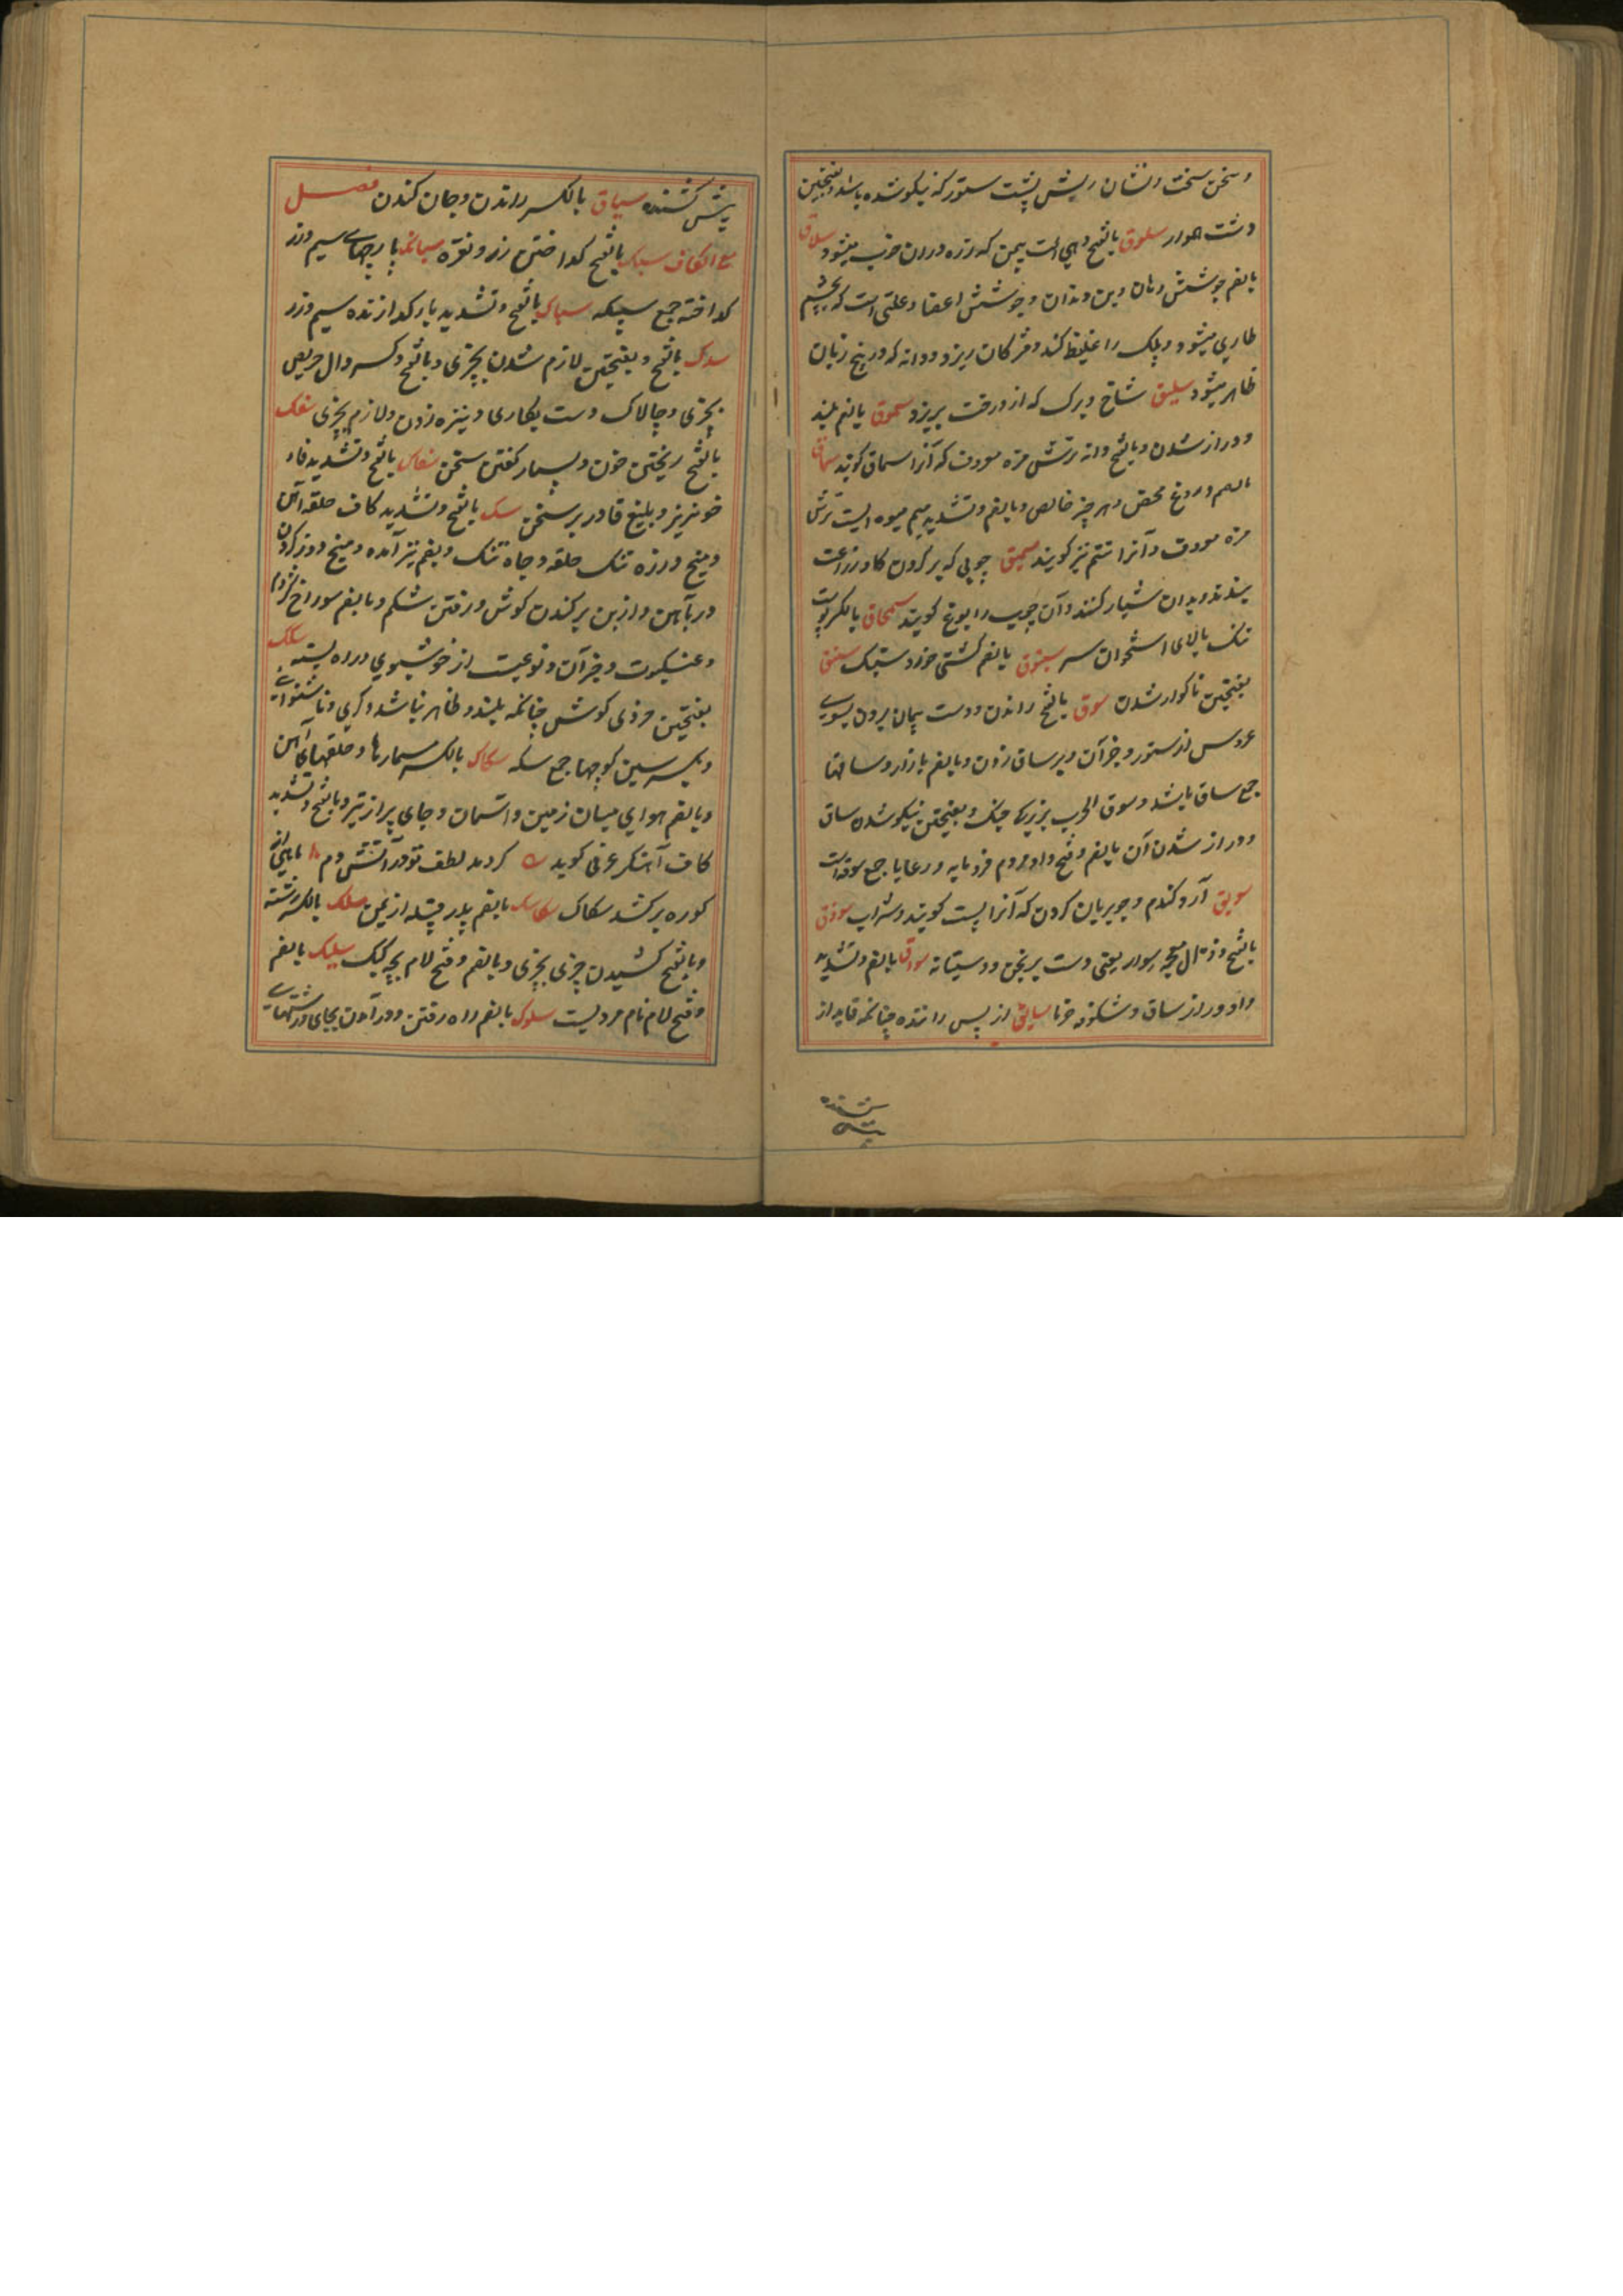 و سخن سخت و نشان ریش پشت ستور که نیکو شده باشد و بفتحتین
دشت هموار سلوق بالفتح دهی است بیمن که زره در ان خوب میشود سلاق
بالضم جوشش دهان و بن دندان و جوشش اعضا و علتی است که بچشم
طاری میشود و پلک را غلیظ کند و مژکان ریزد و دانه که در بیخ زبان
ظاهر میشود سلیق شاخ و برک که از درخت بریزد سموق بالضم بلند
و دراز شدن و بالفتح دانه ترش مزه معروف که آنرا سماق کویند سماق
بالضم دروغ محض و هر چیز خالص و بالضم و تشدید میم میوه ایست ترش
مزه معروف و آنرا تتم نیز کویند سمیق چوبی که بر کردن کاو زراعت
بندند و بدان شیار کنند و آن چوب را یوغ کویند سمحاق بالکسر پوست
تنک بالای استخوان سر سنبوق بالضم کشتی خورد سبک سنق
بفتحتین ناکوار شدن سوق بالفتح راندن و دست پیمان بردن بسوی
عروس از ستور و جز آن و بر ساق زدن و بالضم بازار و ساقها
جمع ساق باشد و سوق الحرب بزرکی جنک و بفتحتین نیکو شدن ساق
و دراز شدن آن بالضم و فتح واو مردم فرومایه و رعایا جمع سوقه است
سویق آرد کندم و جو بریان کردن که آنرا پست کویند و شراب سوذق
بالفتح و ذال معجمه سوار یعنی دست برنجن و دستیانه سواق بالضم و تشدید
واو دراز ساق و شکوفه خرما سایق از پس راننده چنانکه قاید از
پیش کشنده سیاق بالکسر راندن و جان کندن فصل
مع الکاف سبک بالفتح کداختن زر و نقره سبائک پارچهای سیم و زر
کداخته جمع سبیکه سباک بالفتح و تشدید با کدازنده سیم و زر
سدک بالفتح و بفتحتین لازم شدن بچیزی و بالفتح و کسر دال حریص
بچیزی و چالاک دست بکاری و نیزه زدن و لازم بچیزی سفک
بالفتح ریختن خون و بسیار کفتن سخن سفاک بالفتح و تشدید فاء
خونریز و بلیغ قادر بر سخن سک بالفتح و تشدید کاف حلقه آهن
و میخ و زره تنک حلقه و چاه تنک و بضم نیز آمده و میخ دوز کردن
در بآهن و از بن برکندن کوش و رفتن شکم و بالضم سوراخ کژدم
و عنکبوت و جز آن و نوعیست از خوشبوی و راه بسته سکک
بفتحتین خردی کوش چنانکه بلند و ظاهر نباشد و کری و ناشنوای
و بکسر سین کوچها جمع سکه سکاک بالکسر مسمارها و حلقهای آهن
و بالضم هوای میان زمین و آسمان و جای پر از تیر و بالفتح و تشدید
کاف آهنکر عرفی کوید کر دمد لطف تو در آتش دم
کوره برکشد سکاک سکاسک بالضم پدر قبیله از یمن سلک بالکسر رشته
و بالفتح کشیدن چیزی بچیزی و بالضم و فتح لام بچه کبک سلیک بالضم
و فتح لام نام مردیست سلوک بالضم راه رفتن و درآمدن بجای و رشتهای
پیش کشنده